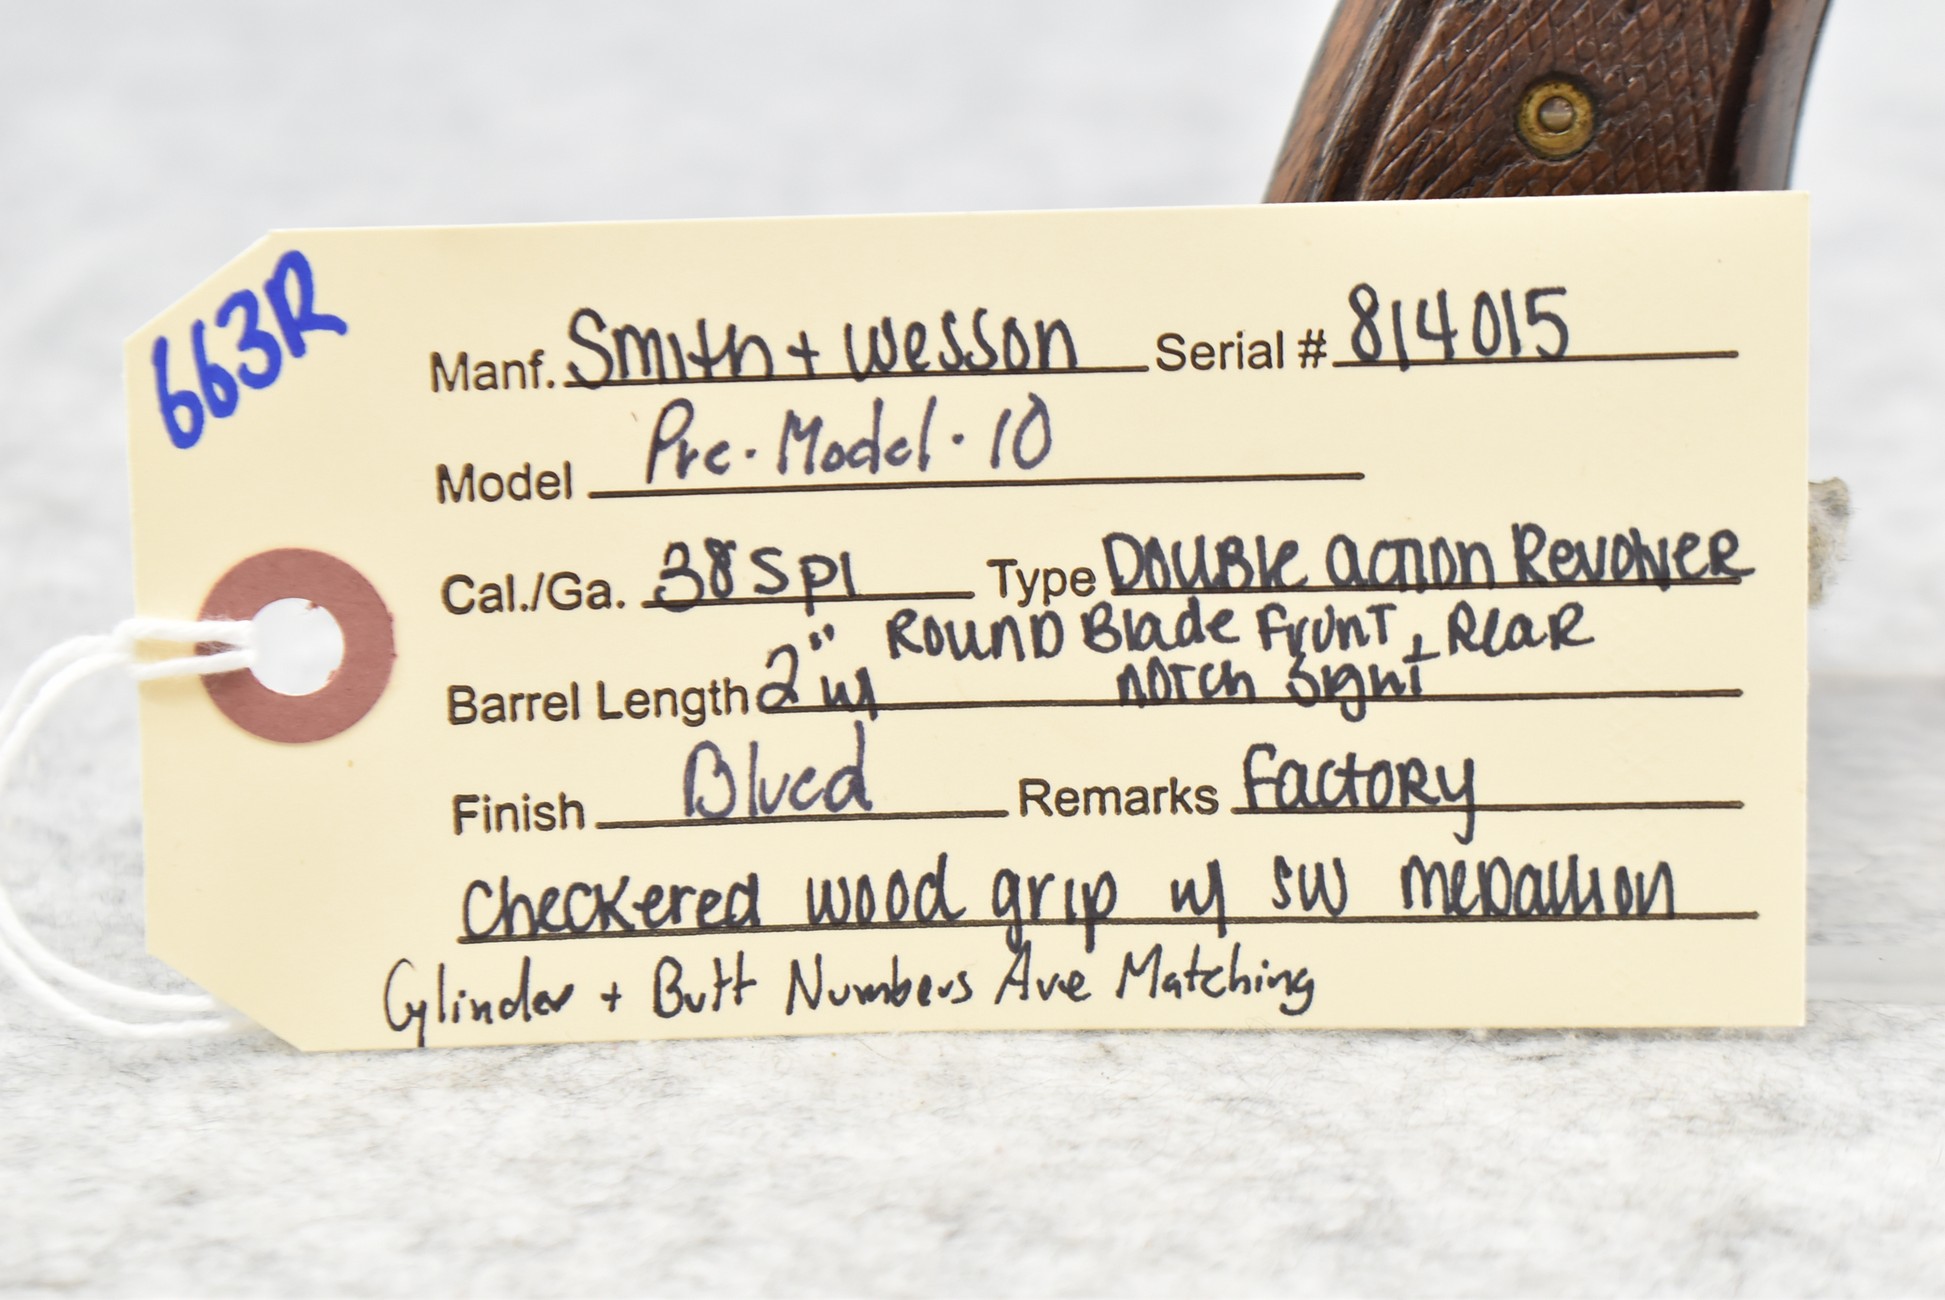 663R
Manf. Smith + Wesson Serial # 814015
Model Pre-Model-10
Cal./Ga. 38 Spl Type Double Action Revolver
Round Blade Front + Rear
Barrel Length 2" w/ notch Sight
Finish Blued Remarks Factory
Checkered wood grip w/ SW medallion
Cylinder + Butt Numbers Are Matching